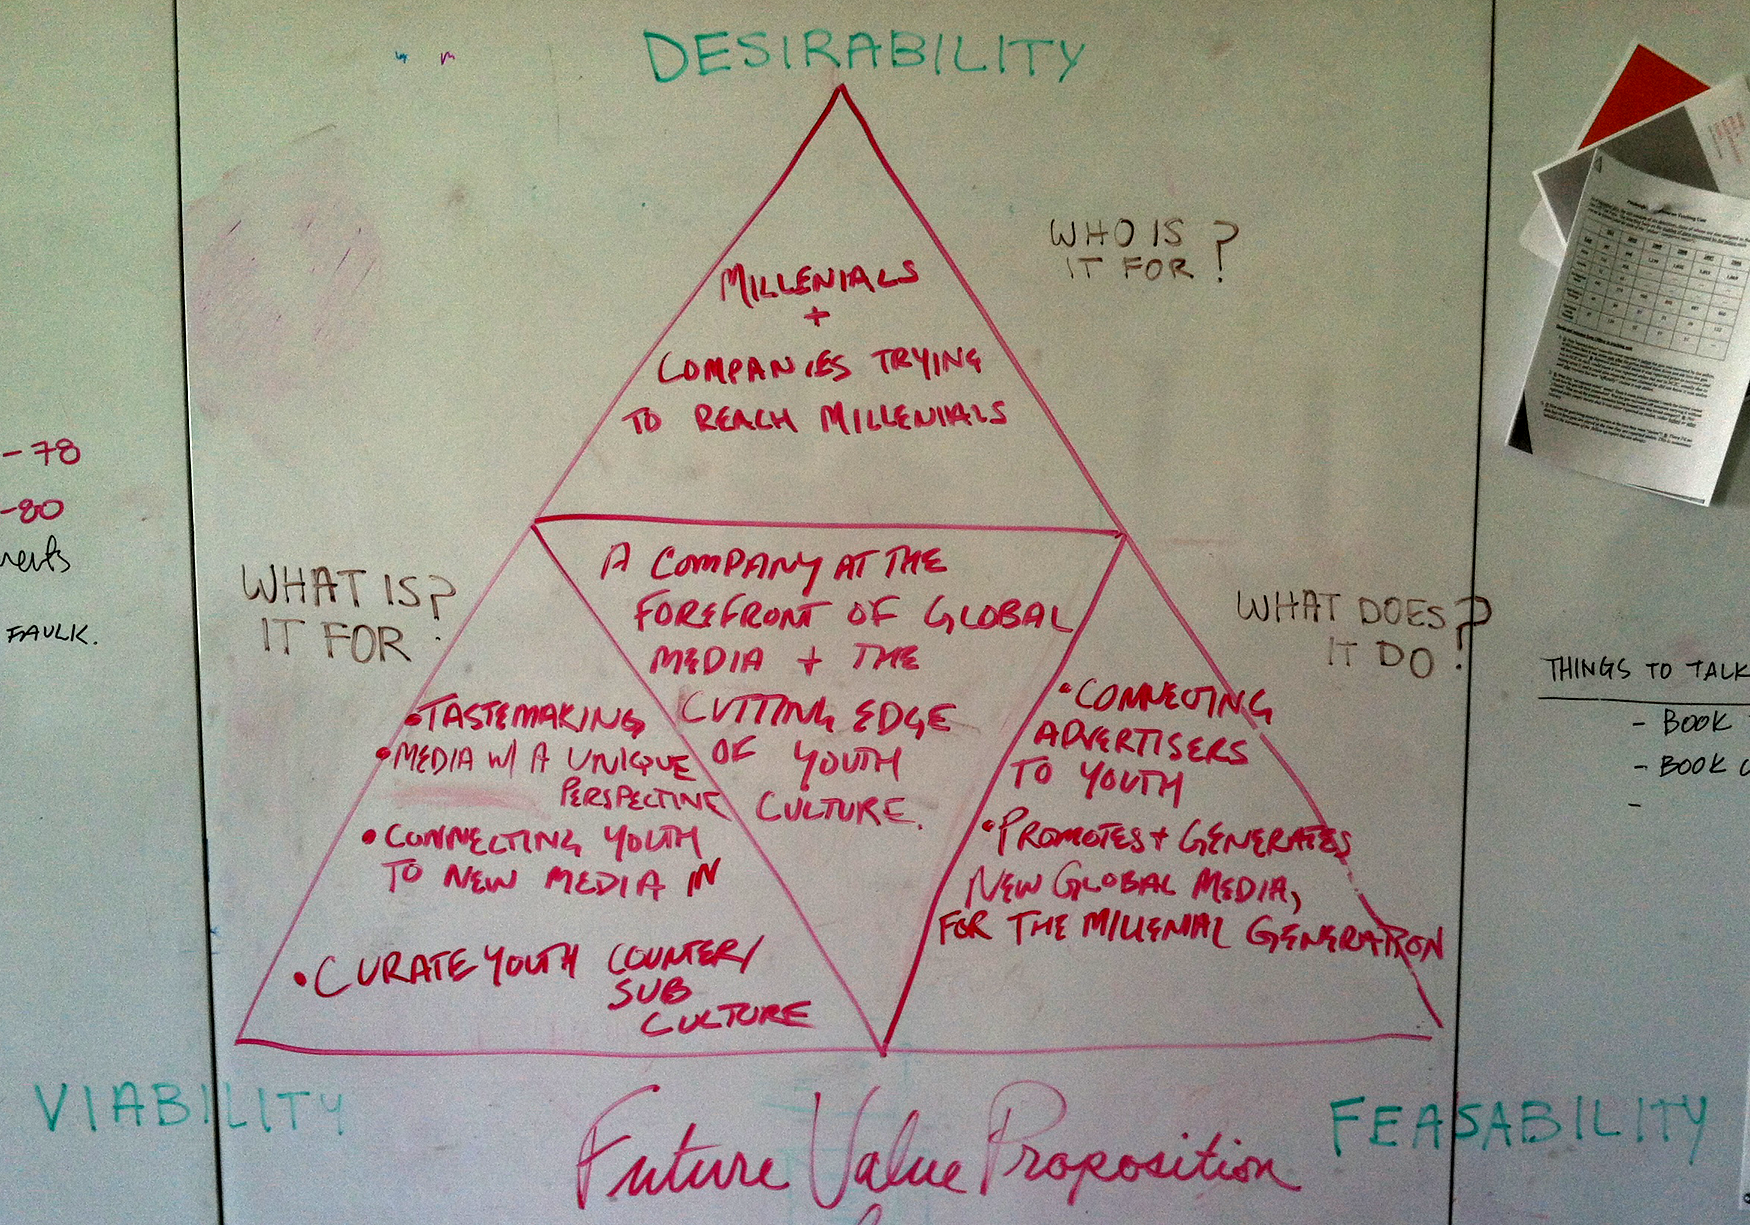 DESIRABILITY
WHO IS
IT FOR?
MILLENIALS
+
COMPANIES TRYING
TO REACH MILLENIALS
WHAT IS?
IT FOR
A COMPANY AT THE
FOREFRONT OF GLOBAL
MEDIA + THE
CUTTING EDGE
OF YOUTH
CULTURE.
WHAT DOES?
IT DO
•TASTEMAKING
•MEDIA W/ A UNIQUE
PERSPECTINE
•CONNECTING YOUTH
TO NEW MEDIA IN
•CURATE YOUTH COUNTER/
SUB
CULTURE
•CONNECTING
ADVERTISERS
TO YOUTH
•PROMOTES + GENERATES
NEW GLOBAL MEDIA,
FOR THE MILLENIAL GENERATION
VIABILITY
FEASABILITY
Future Value Proposition
-78
-80
FAULK.
THINGS TO TALK
- BOOK
- BOOK
-